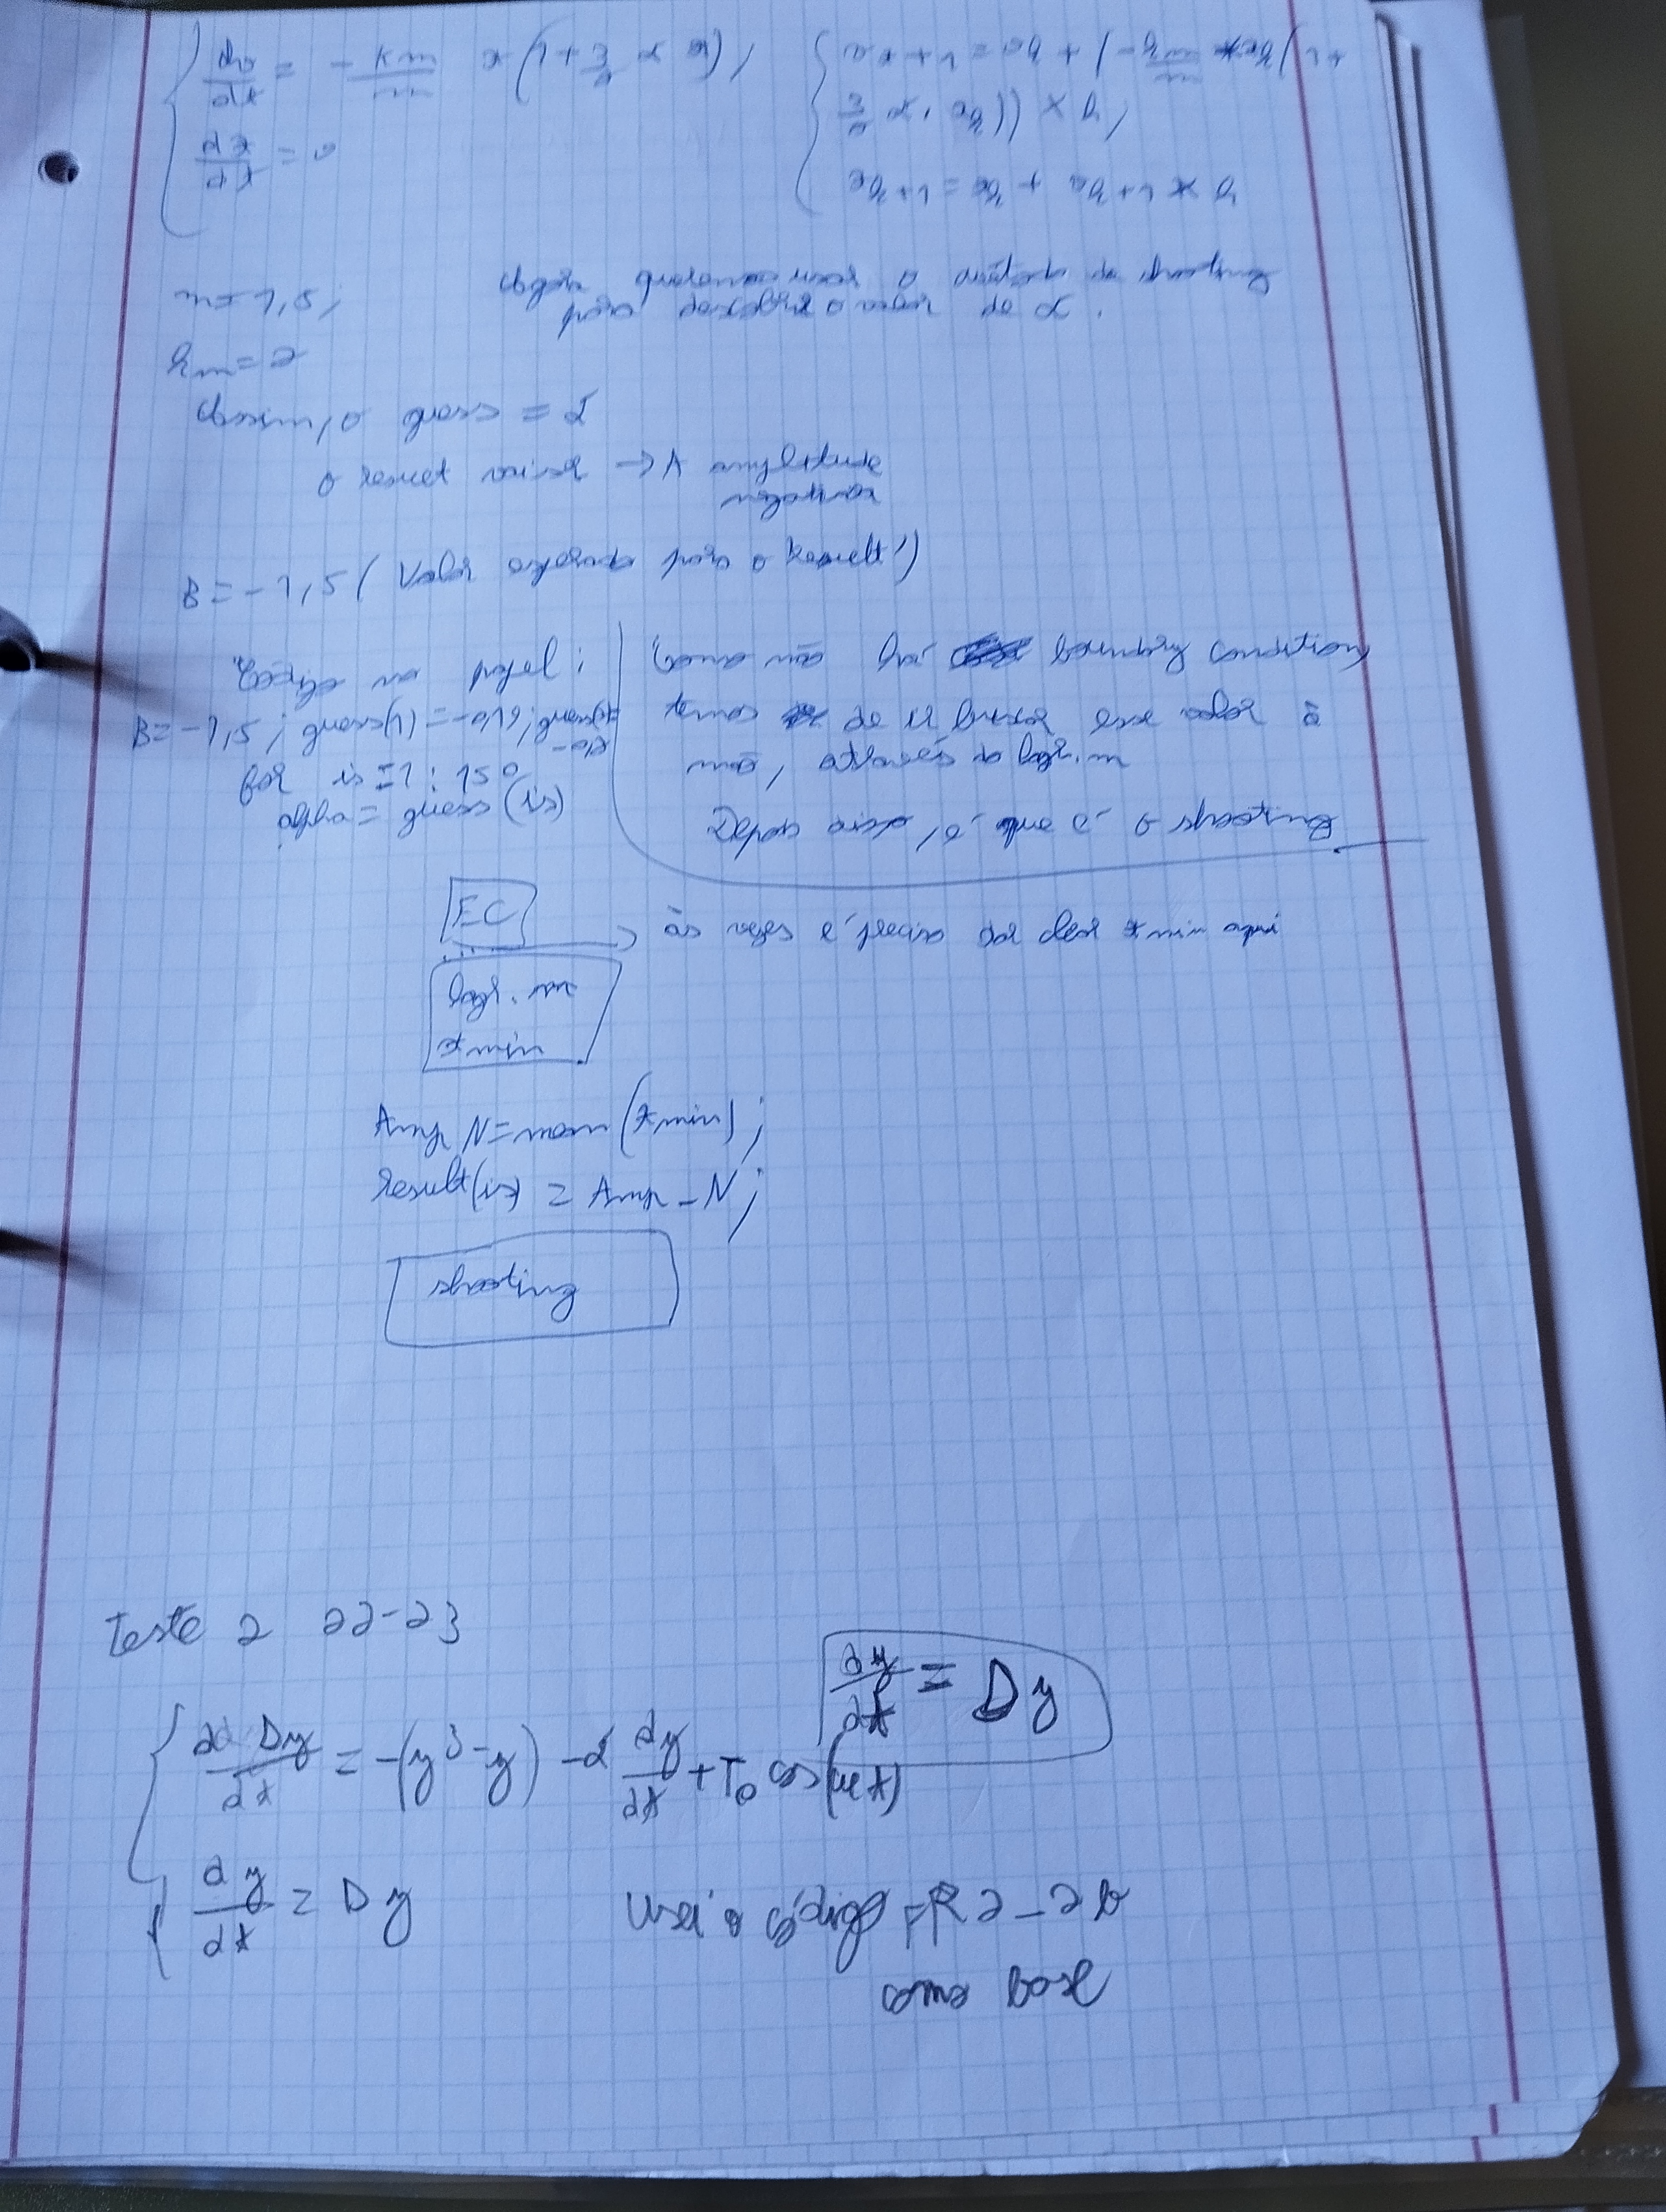 dv/dt = - Km/m x(1 + 3/2 α x),
dx/dt = v
vk+1 = vk + (- km/m * xk(1 +
3/2 α . xk)) × h,
xk+1 = xk + vk+1 * h
m = 1,5;
Agora queremos usar o método do shooting
para descobrir o valor de α.
km = 2
Assim, o guess = α
o result vai ser → A amplitude
negativa
B = -1,5 (Valor esperado para o Result')
Código no papel:
B = -1,5; guess(1) = -0,19; guess(2) =
for is = 1 : 150
alpha = guess (is)
Como não há boundary condition,
temos de ir buscar esse valor à
mão, através do lagr.m
Depois disso, é que é o shooting
EC
às vezes é preciso dar clear tmin aqui
lagr.m
xmin
Amp N = mean(xmin);
result(is) = Amp_N;
shooting
Teste 2 22-23
dy/dt = Dy
dDy/dt = -(y³-y) - α dy/dt + T0 cos(wt)
dy/dt = Dy
Usei o código FR2_2b
como base